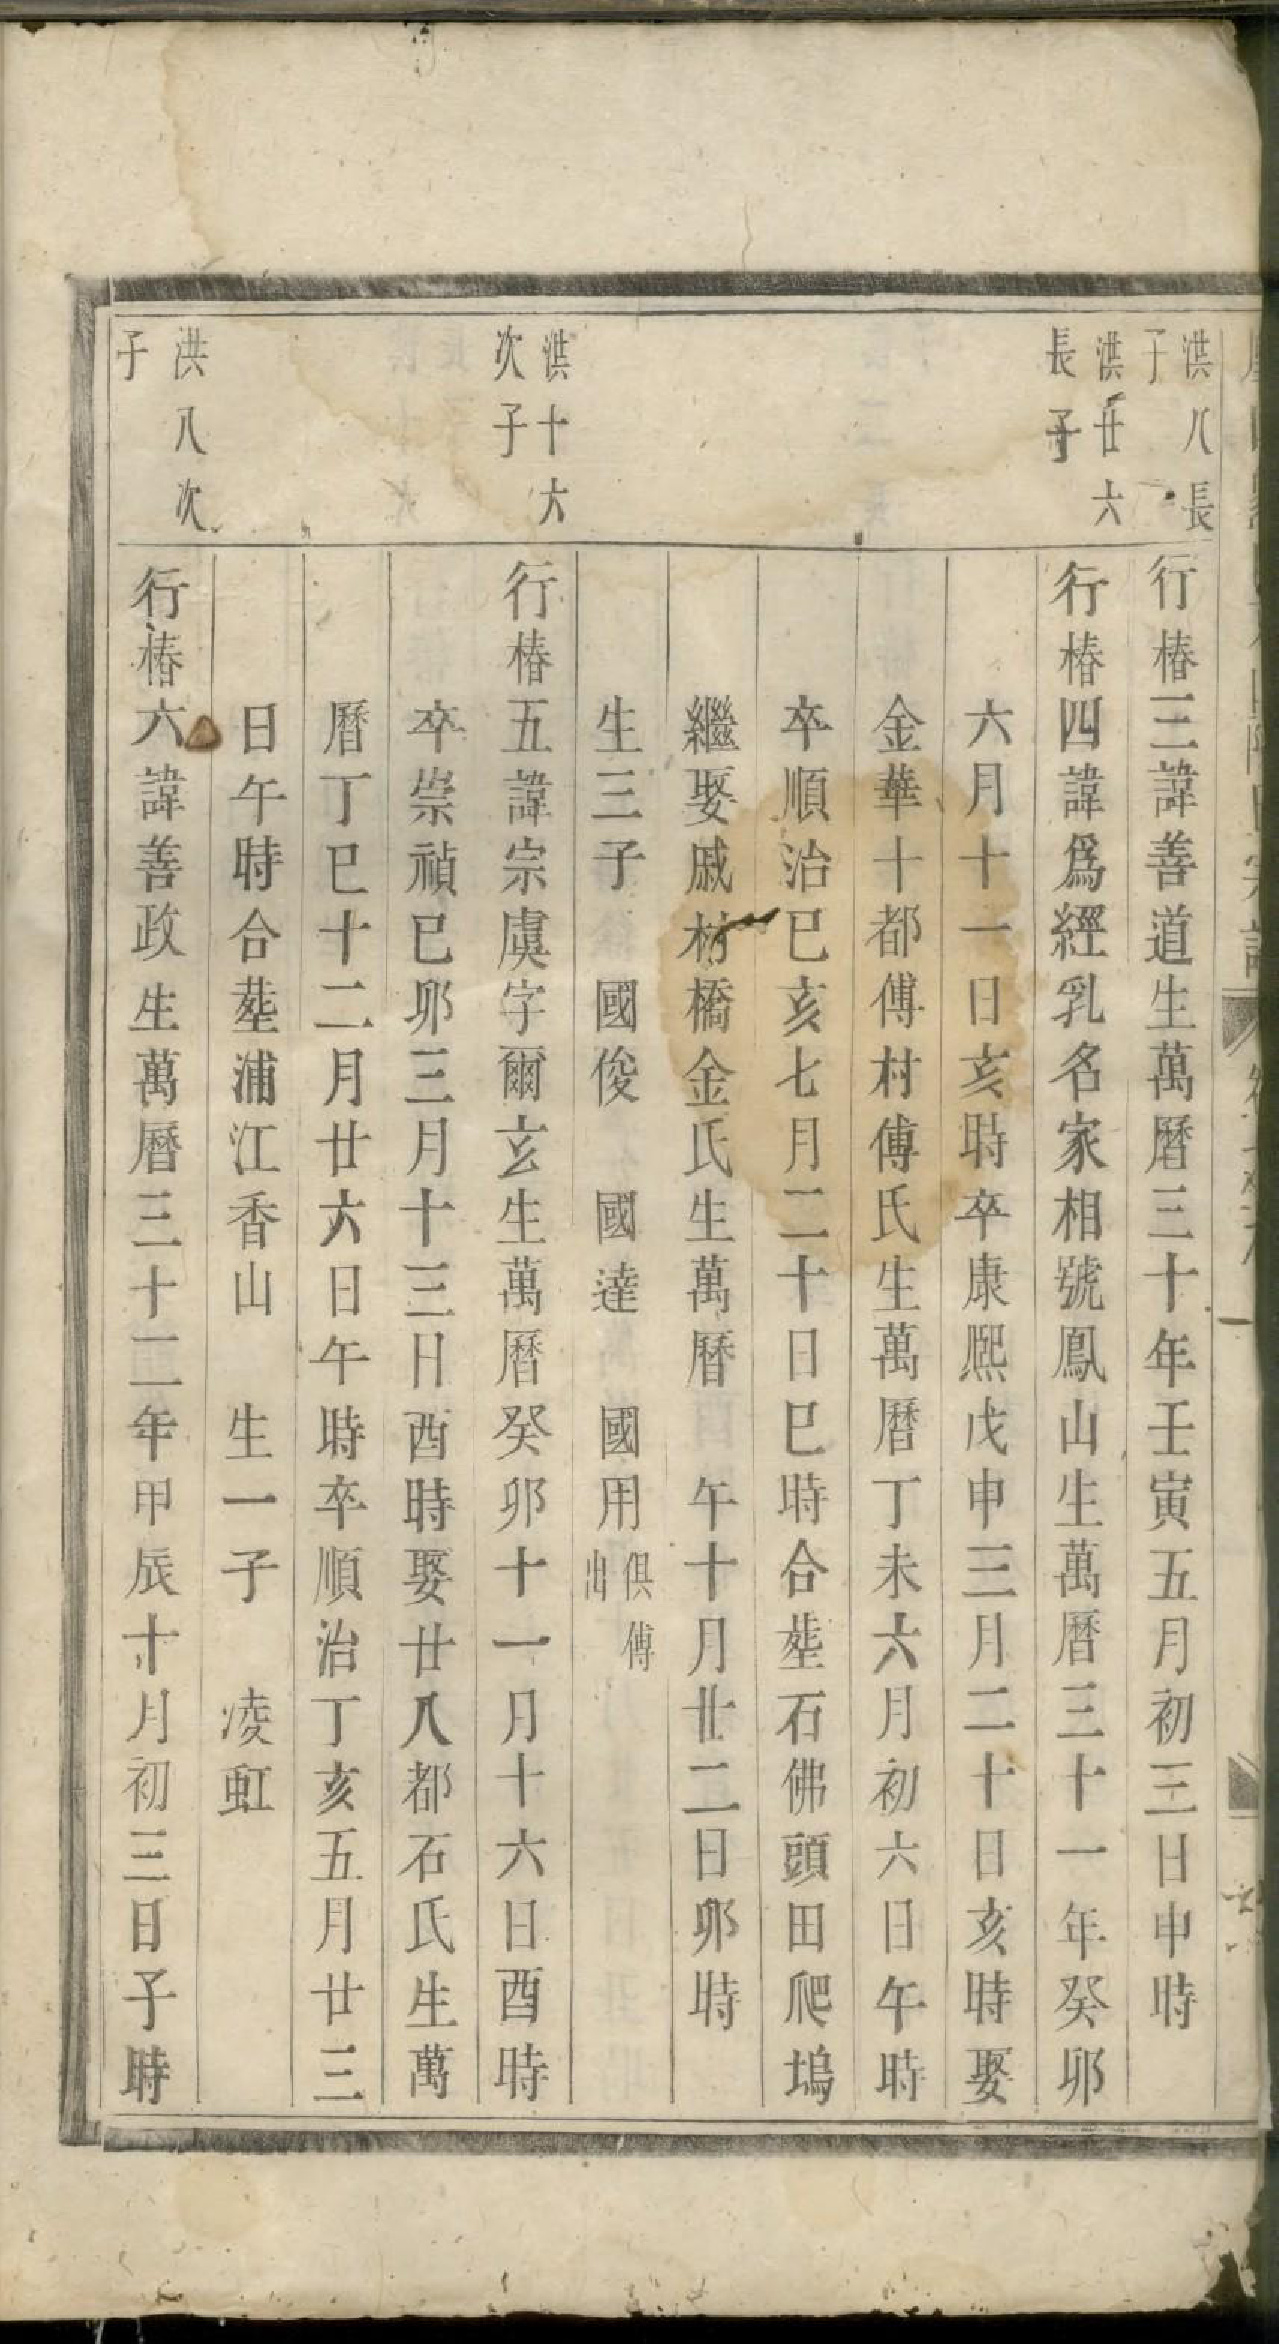 洪八長子
行椿三諱善道生萬曆三十年壬寅五月初三日申時
洪廿六長子
行椿四諱爲經乳名家相號鳳山生萬曆三十一年癸卯
六月十一日亥時卒康熙戊申三月二十日亥時娶
金華十都傅村傅氏生萬曆丁未六月初六日午時
卒順治巳亥七月二十日巳時合塟石佛頭田爬塢
繼娶戚村橋金氏生萬曆 午十月廿二日卯時
生三子 國俊 國達 國用 俱傅出
洪十六次子
行椿五諱宗虞字爾玄生萬曆癸卯十一月十六日酉時
卒崇禎巳卯三月十三日酉時娶廿八都石氏生萬
曆丁巳十二月廿六日午時卒順治丁亥五月廿三
日午時合塟浦江香山 生一子 凌虹
洪八次子
行椿六諱善政生萬曆三十二年甲辰十月初三日子時